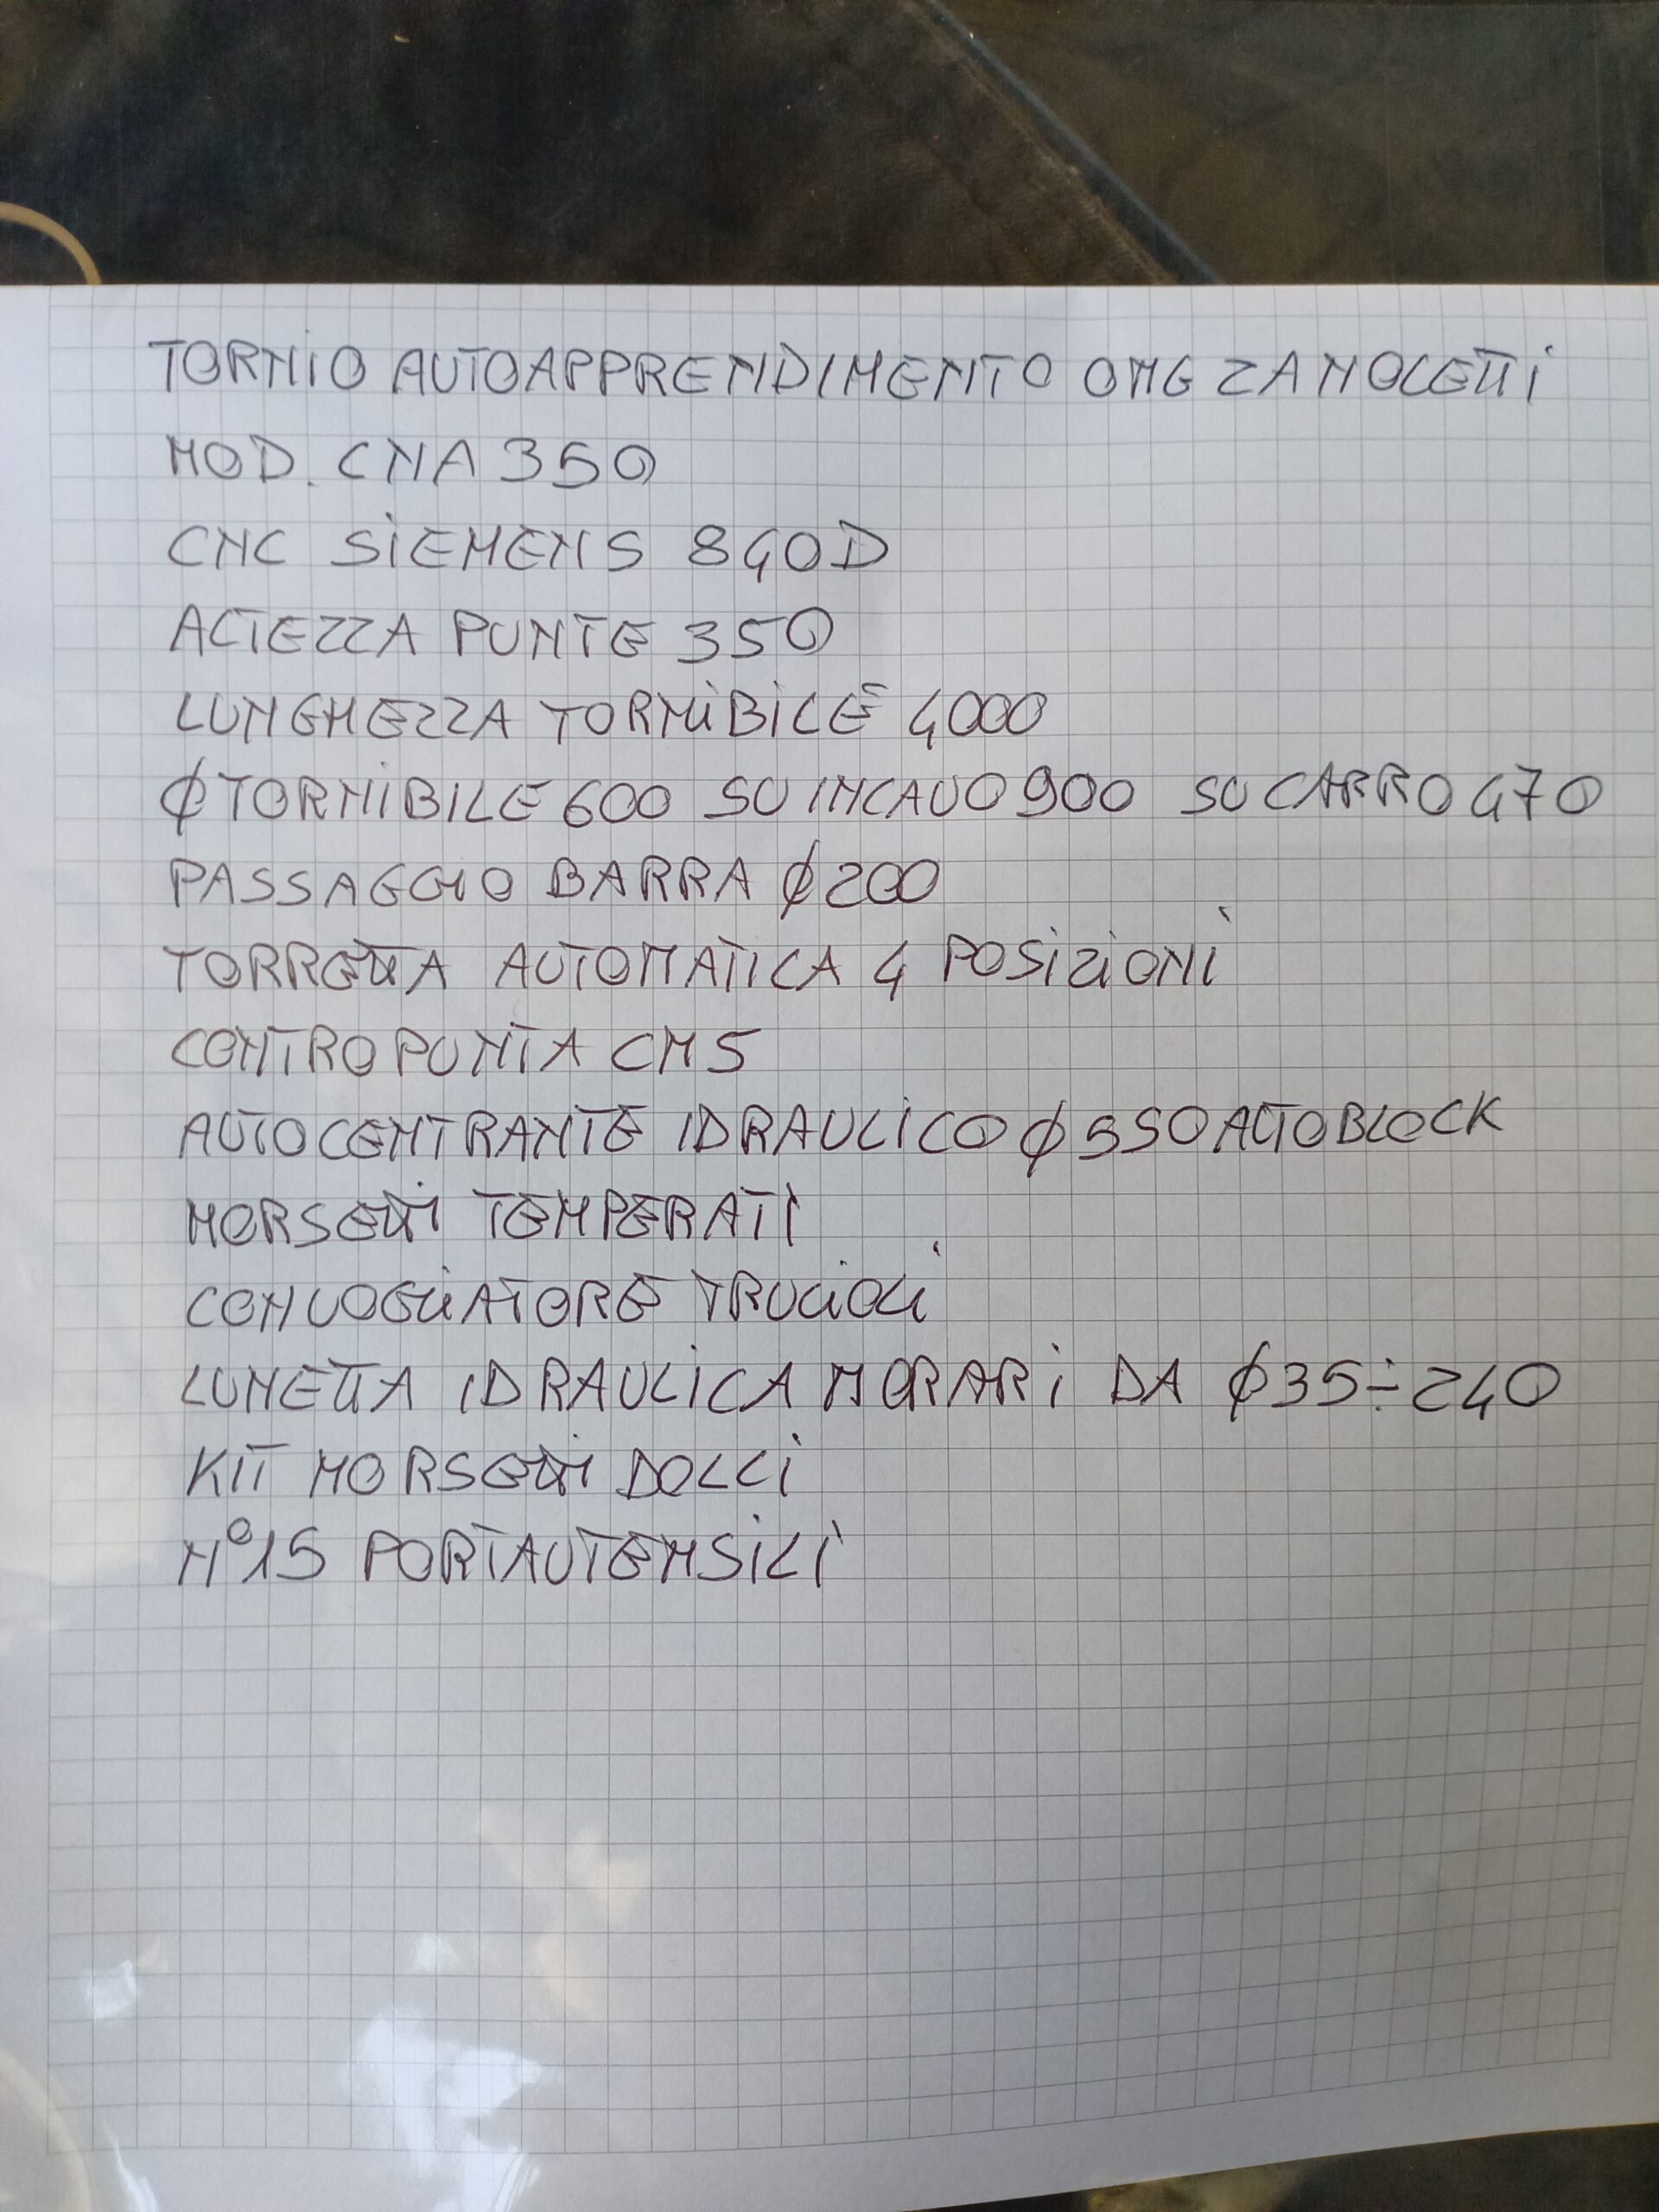 TORNIO AUTOAPPRENDIMENTO OMG ZANOLETTI
MOD. CNA 350
CNC SIEMENS 840D
ALTEZZA PUNTE 350
LUNGHEZZA TORNIBILE 4000
Ø TORNIBILE 600 SU INCAVO 900 SU CARRO 470
PASSAGGIO BARRA Ø 200
TORRETTA AUTOMATICA 4 POSIZIONI
CONTROPUNTA CM5
AUTOCENTRANTE IDRAULICO Ø 550 AUTOBLOCK
MORSETTI TEMPERATI
CONVOGLIATORE TRUCIOLI
LUNETTA IDRAULICA MORARI DA Ø 35÷240
KIT MORSETTI DOLCI
N° 15 PORTAUTENSILI